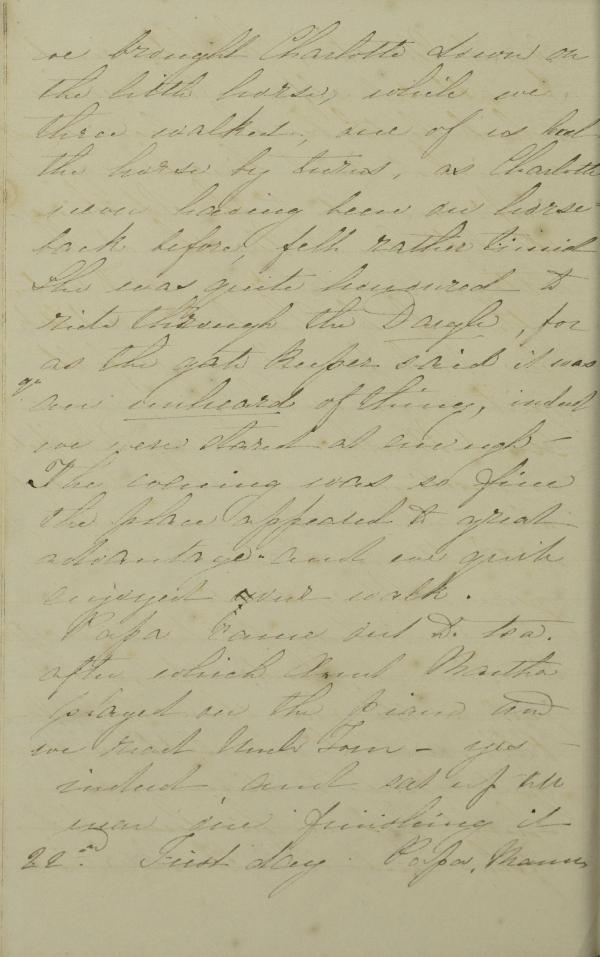 we brought Charlotte down on
the little horse, while we
three walked, one of us held
the horse by turns, as Charlotte
never having been on horse-
back before, felt rather timid
She was quite honoured to
ride through the Dargle, for
as the gate keeper said it was
an unheard of thing, indeed
we were stared at enough -
The evening was so fine
the place appeared to great
advantage and we quite
enjoyed our walk.
Papa came out to tea.
after which Aunt Martha
played on the piano and
we read Uncle Tom - yes -
indeed and sat up till
near finishing it
22nd. First day. Papa, Mama